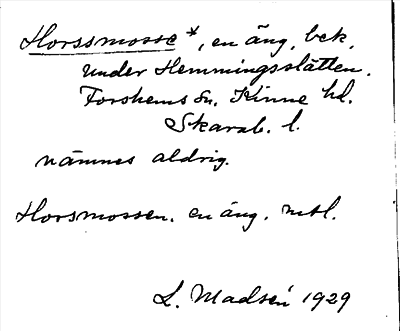 Horssmosse*, en äng, bek.
under Hemmingsslätten.
Forshems sn. Kinne hd.
Skarab. l.
nämnes aldrig.
Horsmossen. en äng. mtl.
L. Madsén 1929